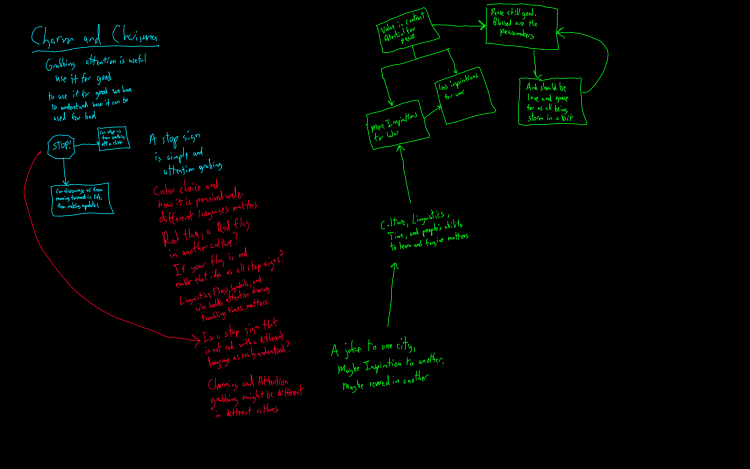 Charm and Charisma
Grabbing attention is useful
use it for good
to use it for good we have
to understand how it can be
used for bad
STOP!
Can stop us
from walking
off a cliff
Can discourage us from
moving forward in life,
from making updates
A stop sign
is simple and
attention grabing
Color choice and
how it is perceived under
different languages matters
Red flag, a Red flag
in another culture?
If your flag is red
make that idea as all stop signs?
Linguistics, Flags, symbols, and
who holds attention during
troubling times matters
Is a stop sign that
is not red with a different
language as easily understood?
Charming and Attention
grabbing might be different
in different cultures
Value in
Potential for
peace
Peace still good,
Blessed are the
peacemakers
less inspirations
for war
And should be
love and grace
for us all being
More Inspirations
for War
Culture, Linguistics,
Time, and people's ability
to learn and forgive matters
A joke to one city,
Maybe Inspiration to another,
maybe revered in another